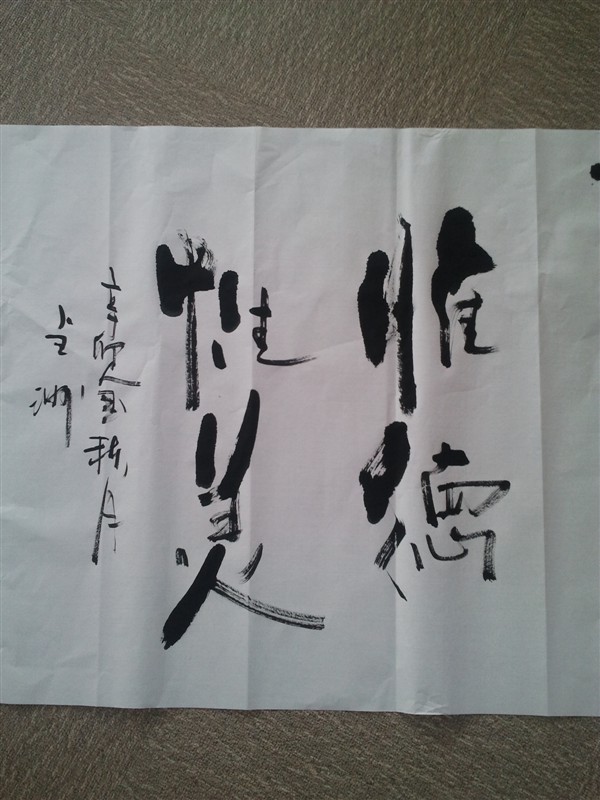 惟德
惟美
辛卯金秋月
洲